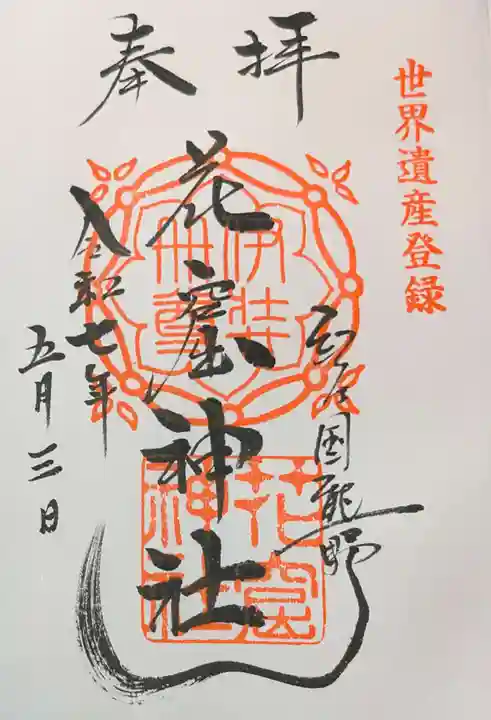 世界遺産登録
奉拝
紀伊国熊野
花窟神社
令和七年
五月三日
伊弉冊尊
花窟神社